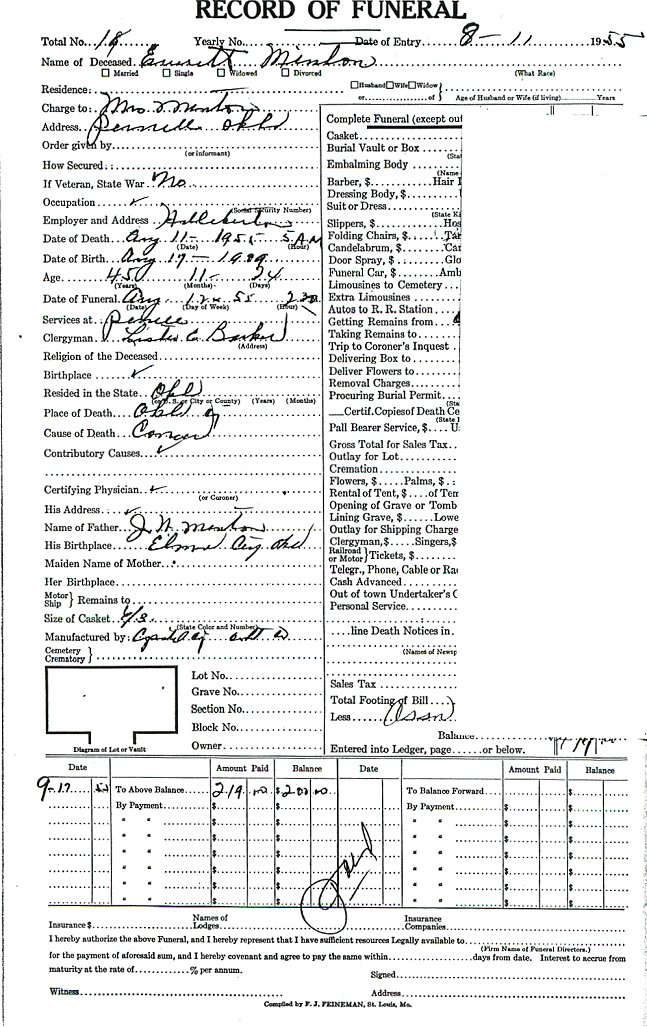 RECORD OF FUNERAL
Total No. 18 Yearly No. Date of Entry 8-11 1955
Name of Deceased Emmett Minton
Married Single Widowed Divorced (What Rate)
Residence: Husband Wife Widow
or of Age of Husband or Wife (if living) Years
Charge to: Mrs Minton
Address Okla
Order given by
(or informant)
How Secured
If Veteran, State War No
Occupation ✓
(Social Security Number)
Employer and Address Halliburton
Date of Death Aug 11 - 1955 5 AM
(Date) (Hour)
Date of Birth Aug 17 - 1909
Age 45 11 24
(Years) (Months) (Days)
Date of Funeral Aug 12 55 2 30
(Date) (Day of Week) (Hour)
Services at
Clergyman Barker
(Address)
Religion of the Deceased
Birthplace ✓
Resided in the State Okla
(or U. S. or City or County) (Years) (Months)
Place of Death Okla
Cause of Death Cancer
Contributory Causes ✓
Certifying Physician ✓
(or Coroner)
His Address ✓
Name of Father J. N. Minton
His Birthplace
Maiden Name of Mother
Her Birthplace
Motor Ship Remains to
Size of Casket 6/3
(State Color and Number)
Manufactured by:
Cemetery
Crematory
Diagram of Lot or Vault
Lot No.
Grave No.
Section No.
Block No.
Owner
Complete Funeral (except out
Casket
Burial Vault or Box
(Stat
Embalming Body
(Name
Barber, $ Hair
Dressing Body, $
Suit or Dress
(State Ki
Slippers, $ Hos
Folding Chairs, $ Tab
Candelabrum, $ Can
Door Spray, $ Glo
Funeral Car, $ Amb
Limousines to Cemetery
Extra Limousines
Autos to R. R. Station
Getting Remains from
Taking Remains to
Trip to Coroner's Inquest
Delivering Box to
Deliver Flowers to
Removal Charges
Procuring Burial Permit
(Sta
Certif. Copies of Death Ce
(State
Pall Bearer Service, $ U
Gross Total for Sales Tax
Outlay for Lot
Cremation
Flowers, $ Palms, $
Rental of Tent, $ of Ten
Opening of Grave or Tomb
Lining Grave, $ Lowe
Outlay for Shipping Charge
Clergyman, $ Singers, $
Railroad or Motor Tickets, $
Telegr., Phone, Cable or Ra
Cash Advanced
Out of town Undertaker's C
Personal Service
line Death Notices in
(Names of Newsp
Sales Tax
Total Footing of Bill
Less
Balance
Entered into Ledger, page or below.
Date Amount Paid Balance Date Amount Paid Balance
9-17 To Above Balance 219 00 $200 00 To Balance Forward
By Payment $ $ By Payment $ $
" " $ $ " " $ $
" " $ $ " " $ $
" " $ $ " " $ $
" " $ $ " " $ $
" " $ $ " " $ $
" " $ $ " " $ $
Paid
Insurance $ Names of Lodges Insurance Companies
I hereby authorize the above Funeral, and I hereby represent that I have sufficient resources Legally available to
(Firm Name of Funeral Directors.)
for the payment of aforesaid sum, and I hereby covenant and agree to pay the same within days from date. Interest to accrue from
maturity at the rate of % per annum. Signed
Witness Address
Compiled by F. J. FEINEMAN, St. Louis, Mo.